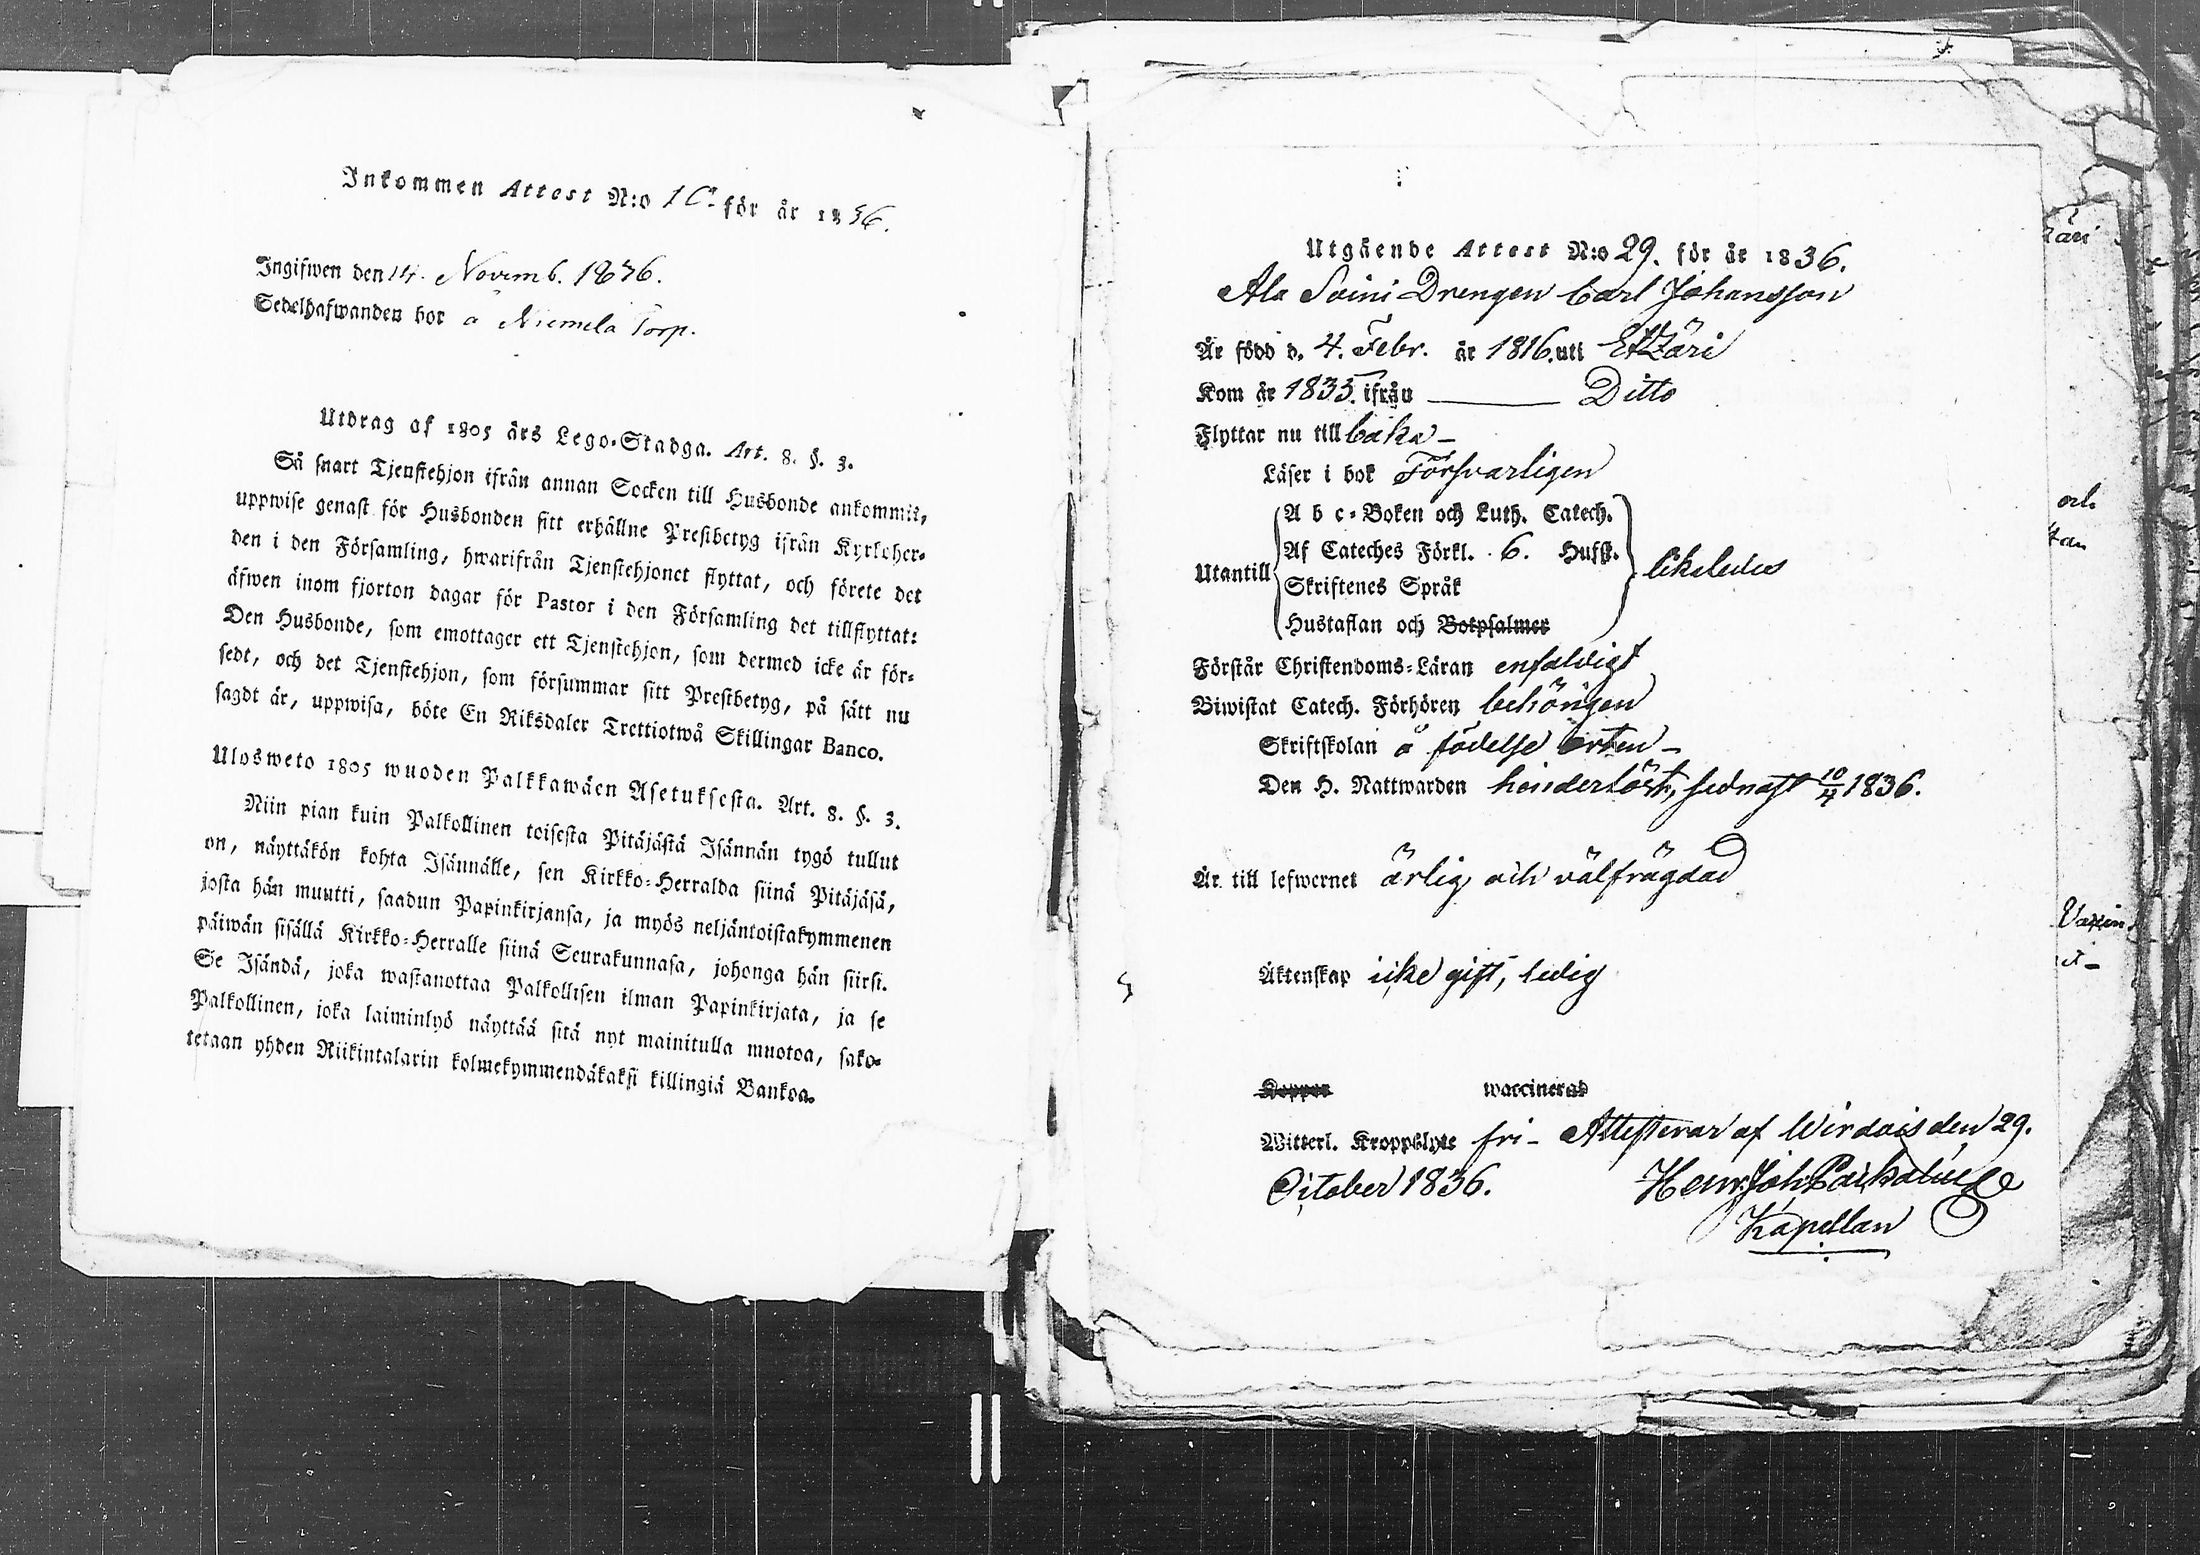 Inkommen Attest N:o 10. för år 1836.
Ingifwen den 14. Novemb. 1836.
Sedelhafwanden bor å Niemelä Torp.
Utdrag af 1805 års Lego-Stadga. Art. 8. §. 3.
Så snart Tjenstehjon ifrån annan Socken till Husbonde ankommit,
uppwise genast för Husbonden sitt erhållne Prestbetyg ifrån Kyrkoher-
den i den Församling, hwarifrån Tjenstehjonet flyttat, och förete det
äfwen inom fjorton dagar för Pastor i den Församling det tillflyttat:
Den Husbonde, som emottager ett Tjenstehjon, som dermed icke är för-
sedt, och det Tjenstehjon, som försummar sitt Prestbetyg, på sätt nu
sagdt är, uppwisa, böte En Riksdaler Trettiotwå Skillingar Banco.
Ulosweto 1805 wuoden Palkkawäen Asetuksesta. Art. 8. §. 3.
Niin pian kuin Palkollinen toisesta Pitäjästä Isännän tygö tullut
on, näyttäkön kohta Isännälle, sen Kirkko-Herralda siinä Pitäjäsä,
josta hän muutti, saadun Papinkirjansa, ja myös neljäntoistakymmenen
päiwän sisällä Kirkko-Herralle siinä Seurakunnasa, johonga hän siirsi.
Se Isändä, joka wastanottaa Palkollisen ilman Papinkirjata, ja se
Palkollinen, joka laiminlyö näyttää sitä nyt mainitulla muotoa, sako-
tetaan yhden Riikintalarin kolmekymmendäkaksi killingiä Bankoa.
Utgående Attest N:o 29. för år 1836.
Ala Soini Drengen Carl Johansson
Är född d. 4. Febr. år 1816. uti Etzäri
Kom år 1835. ifrån Ditto
Flyttar nu till baka
Läser i bok Försvarligen
A b c-Boken och Luth. Catech.
Af Cateches Förkl. 6. Hufst.
Utantill likaledes
Skriftenes Språk
Hustaflan och Botpsalmer
Förstår Christendoms-Läran enfaldigt
Biwistat Catech. Förhören behörigen
Skriftskolan å födelse orten
Den H. Nattwarden hinderlöst, sednast 10/4 1836.
Är till lefwernet ärlig och välfrägdad
Äktenskap icke gift, ledig
Koppor waccinerad
Witterl. Kroppslyte fri - Attesterar af Wirdois den 29.
October 1836. Henr. Joh.
Kapellan